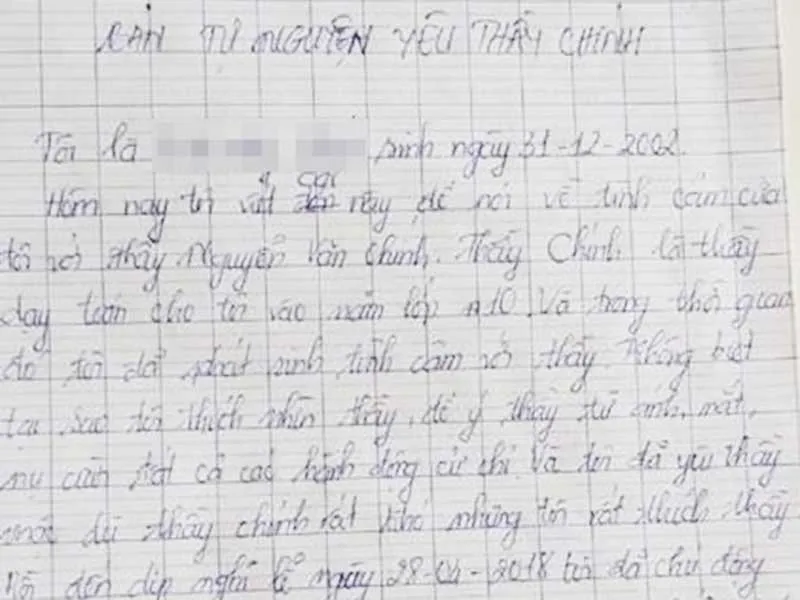 BẢN TỰ NGUYỆN YÊU THẦY CHÍNH
Tôi là sinh ngày 31-12-2002.
Hôm nay tôi viết này để nói về tình cảm của
tôi với thầy Nguyễn Văn Chính. Thầy Chính là thầy
dạy toán cho tôi vào năm lớp 10. Và trong thời gian
đó tôi đã phát sinh tình cảm với thầy. Không biết
tại sao tôi thích nhìn thầy, để ý thầy từ ánh mắt,
nụ cười tất cả các hành động cử chỉ. Và tôi đã yêu thầy
mặc dù thầy chính rất khó nhưng tôi rất thích thầy
Rồi đến dịp nghỉ lễ ngày 28-04-2018 tôi đã chủ động